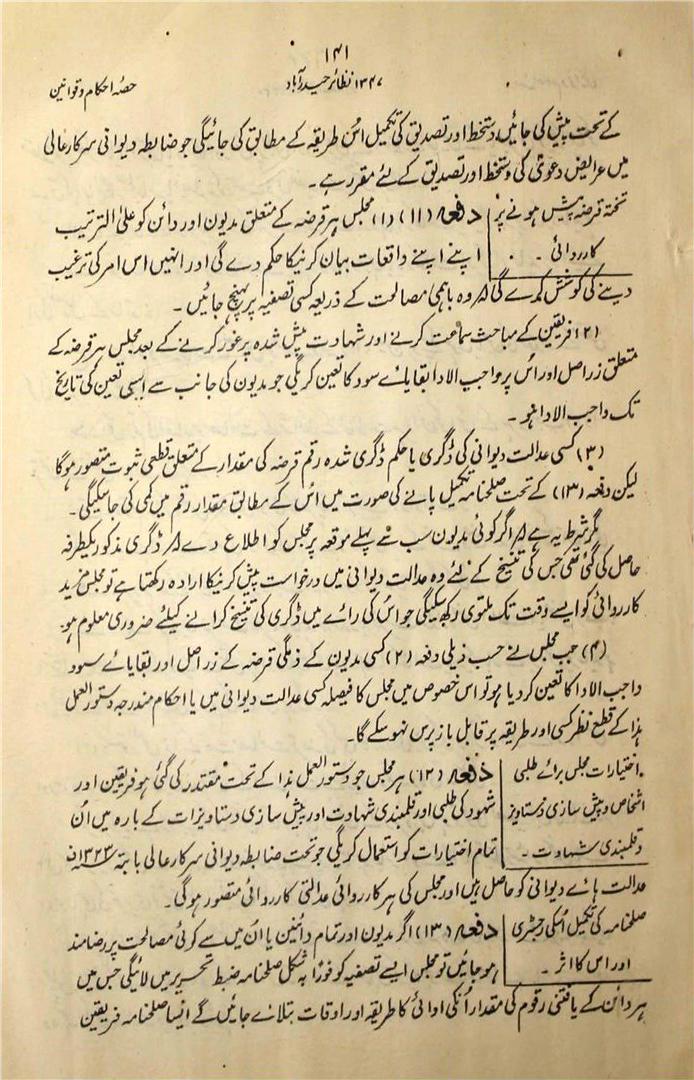 ۱۴۱
۱۳۴۷ نظائر حیدرآباد
حصہ احکام و قوانین
کے تحت پیش کی جائیں دستخط اور تصدیق کی تکمیل اُس طریقہ کے مطابق کی جائیگی جو ضابطہ دیوانی سرکار عالی
میں عرایض دعویٰ کی دستخط اور تصدیق کے لئے مقرر ہے۔
تختہ قرضہ پیش ہونے پر
کارروائی ۔
دفعہ (۱۱) (۱) مجلس ہر قرضہ کے متعلق مدیون اور دائن کو علی الترتیب
اپنے اپنے واقعات بیان کرنیکا حکم دے گی اور انہیں اس امر کی ترغیب
دینے کی کوشش کرے گی کہ وہ باہمی مصالحت کے ذریعہ کسی تصفیہ پر پہنچ جائیں ۔
(۲) فریقین کے مباحث سماعت کرنے اور شہادت پیش شدہ پر غور کرنے کے بعد مجلس ہر قرضہ کے
متعلق زر اصل اور اُس پر واجب الادا بقایائے سود کا تعین کریگی جو مدیون کی جانب سے ایسی تعین کی تاریخ
تک واجب الادا ہو ۔
(۳) کسی عدالت دیوانی کی ڈگری یا حکم ڈگری شدہ رقم قرضہ کی مقدار کے متعلق قطعی ثبوت متصور ہوگا
لیکن دفعہ (۱۳) کے تحت صلحنامہ تکمیل پانے کی صورت میں اُس کے مطابق مقدار رقم میں کمی کی جا سکیگی ۔
مگر شرط یہ ہے کہ اگر کوئی مدیون سب سے پہلے موقعہ پر مجلس کو اطلاع دے کہ ڈگری مذکور یکطرفہ
حاصل کی گئی تھی جس کی تنسیخ کے لئے وہ عدالت دیوانی میں درخواست پیش کرنیکا ارادہ رکھتا ہے تو مجلس مزید
کارروائی کو ایسے وقت تک ملتوی رکھ سکیگی جو اُس کی رائے میں ڈگری کی تنسیخ کرانے کیلئے ضروری معلوم ہو
(۴) جب مجلس نے حسب ذیلی دفعہ (۲) کسی مدیون کے ذمگی قرضہ کے زر اصل اور بقایائے سود
واجب الادا کا تعین کر دیا ہو تو اس خصوص میں مجلس کا فیصلہ کسی عدالت دیوانی میں یا احکام مندرجہ دستور العمل
ہذا کے قطع نظر کسی اور طریقہ پر قابل باز پرس نہوسکے گا ۔
اختیارات مجلس برائے طلبی
اشخاص و پیش سازی دستاویز
و قلمبندی شہادت ۔
دفعہ (۱۲) ہر مجلس جو دستور العمل ہذا کے تحت مقتدر کی گئی ہو فریقین اور
شہود کی طلبی اور قلمبندی شہادت اور پیش سازی دستاویزات کے بارہ میں اُن
تمام اختیارات کو استعمال کریگی جو تحت ضابطہ دیوانی سرکار عالی بابتہ ۱۳۲۳ ف
عدالت ہائے دیوانی کو حاصل ہیں اور مجلس کی ہر کارروائی عدالتی کارروائی متصور ہوگی ۔
صلحنامہ کی تکمیل اُسکی رجسٹری
اور اس کا اثر ۔
دفعہ (۱۳) اگر مدیون اور تمام دائنین یا اُن میں سے کوئی مصالحت پر رضامند
ہو جائیں تو مجلس ایسے تصفیہ کو فوراً بہ شکل صلحنامہ ضبط تحریر میں لائیگی جس میں
ہر دائن کے یافتنی رقوم کی مقدار اُنکی ادائی کا طریقہ اور اوقات بتلائے جائیں گے ایسا صلحنامہ فریقین